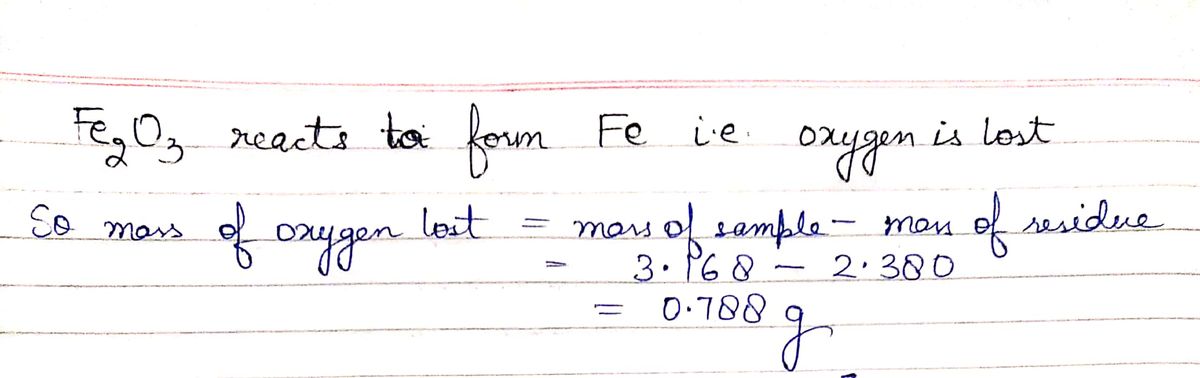 Fe₂O₃ reacts to form Fe i.e. oxygen is lost
So mass of oxygen lost = mass of sample - mass of residue
= 3.168 - 2.380
= 0.788 g